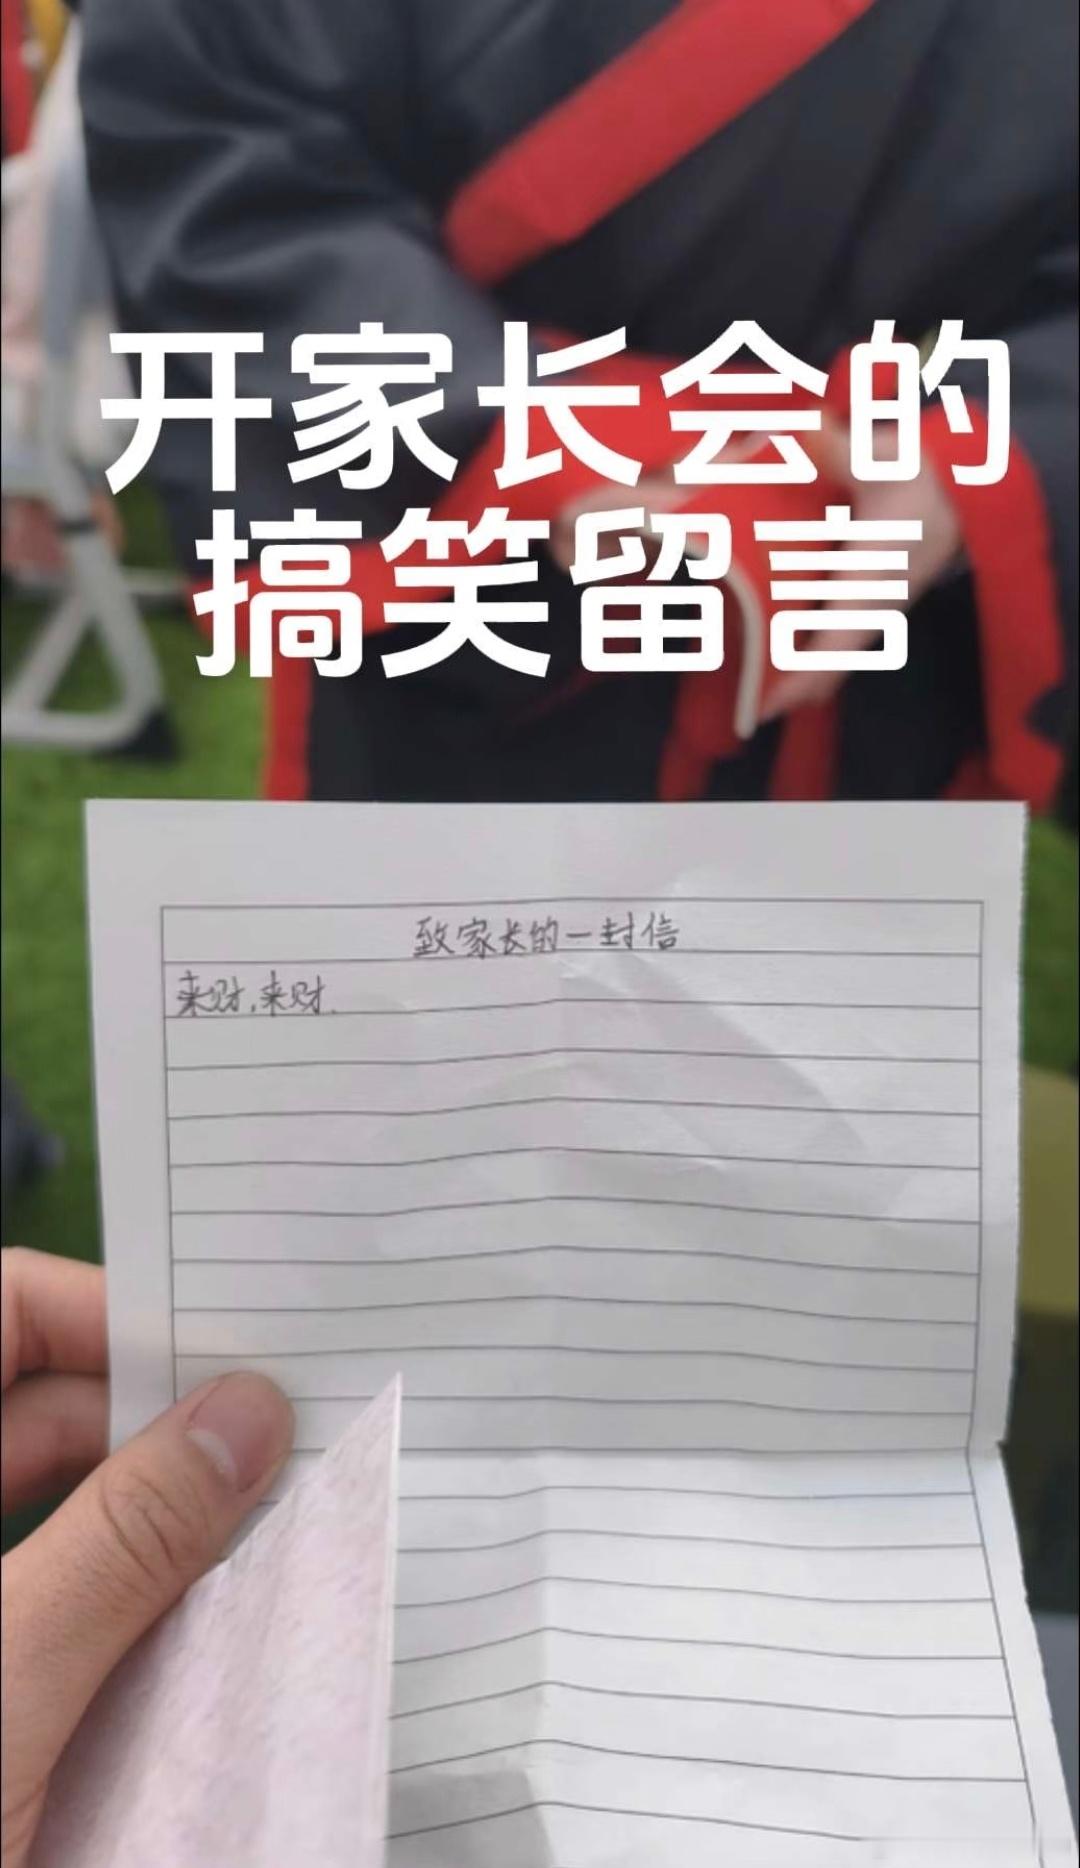 开家长会的
搞笑留言
致家长的一封信
来财,来财.